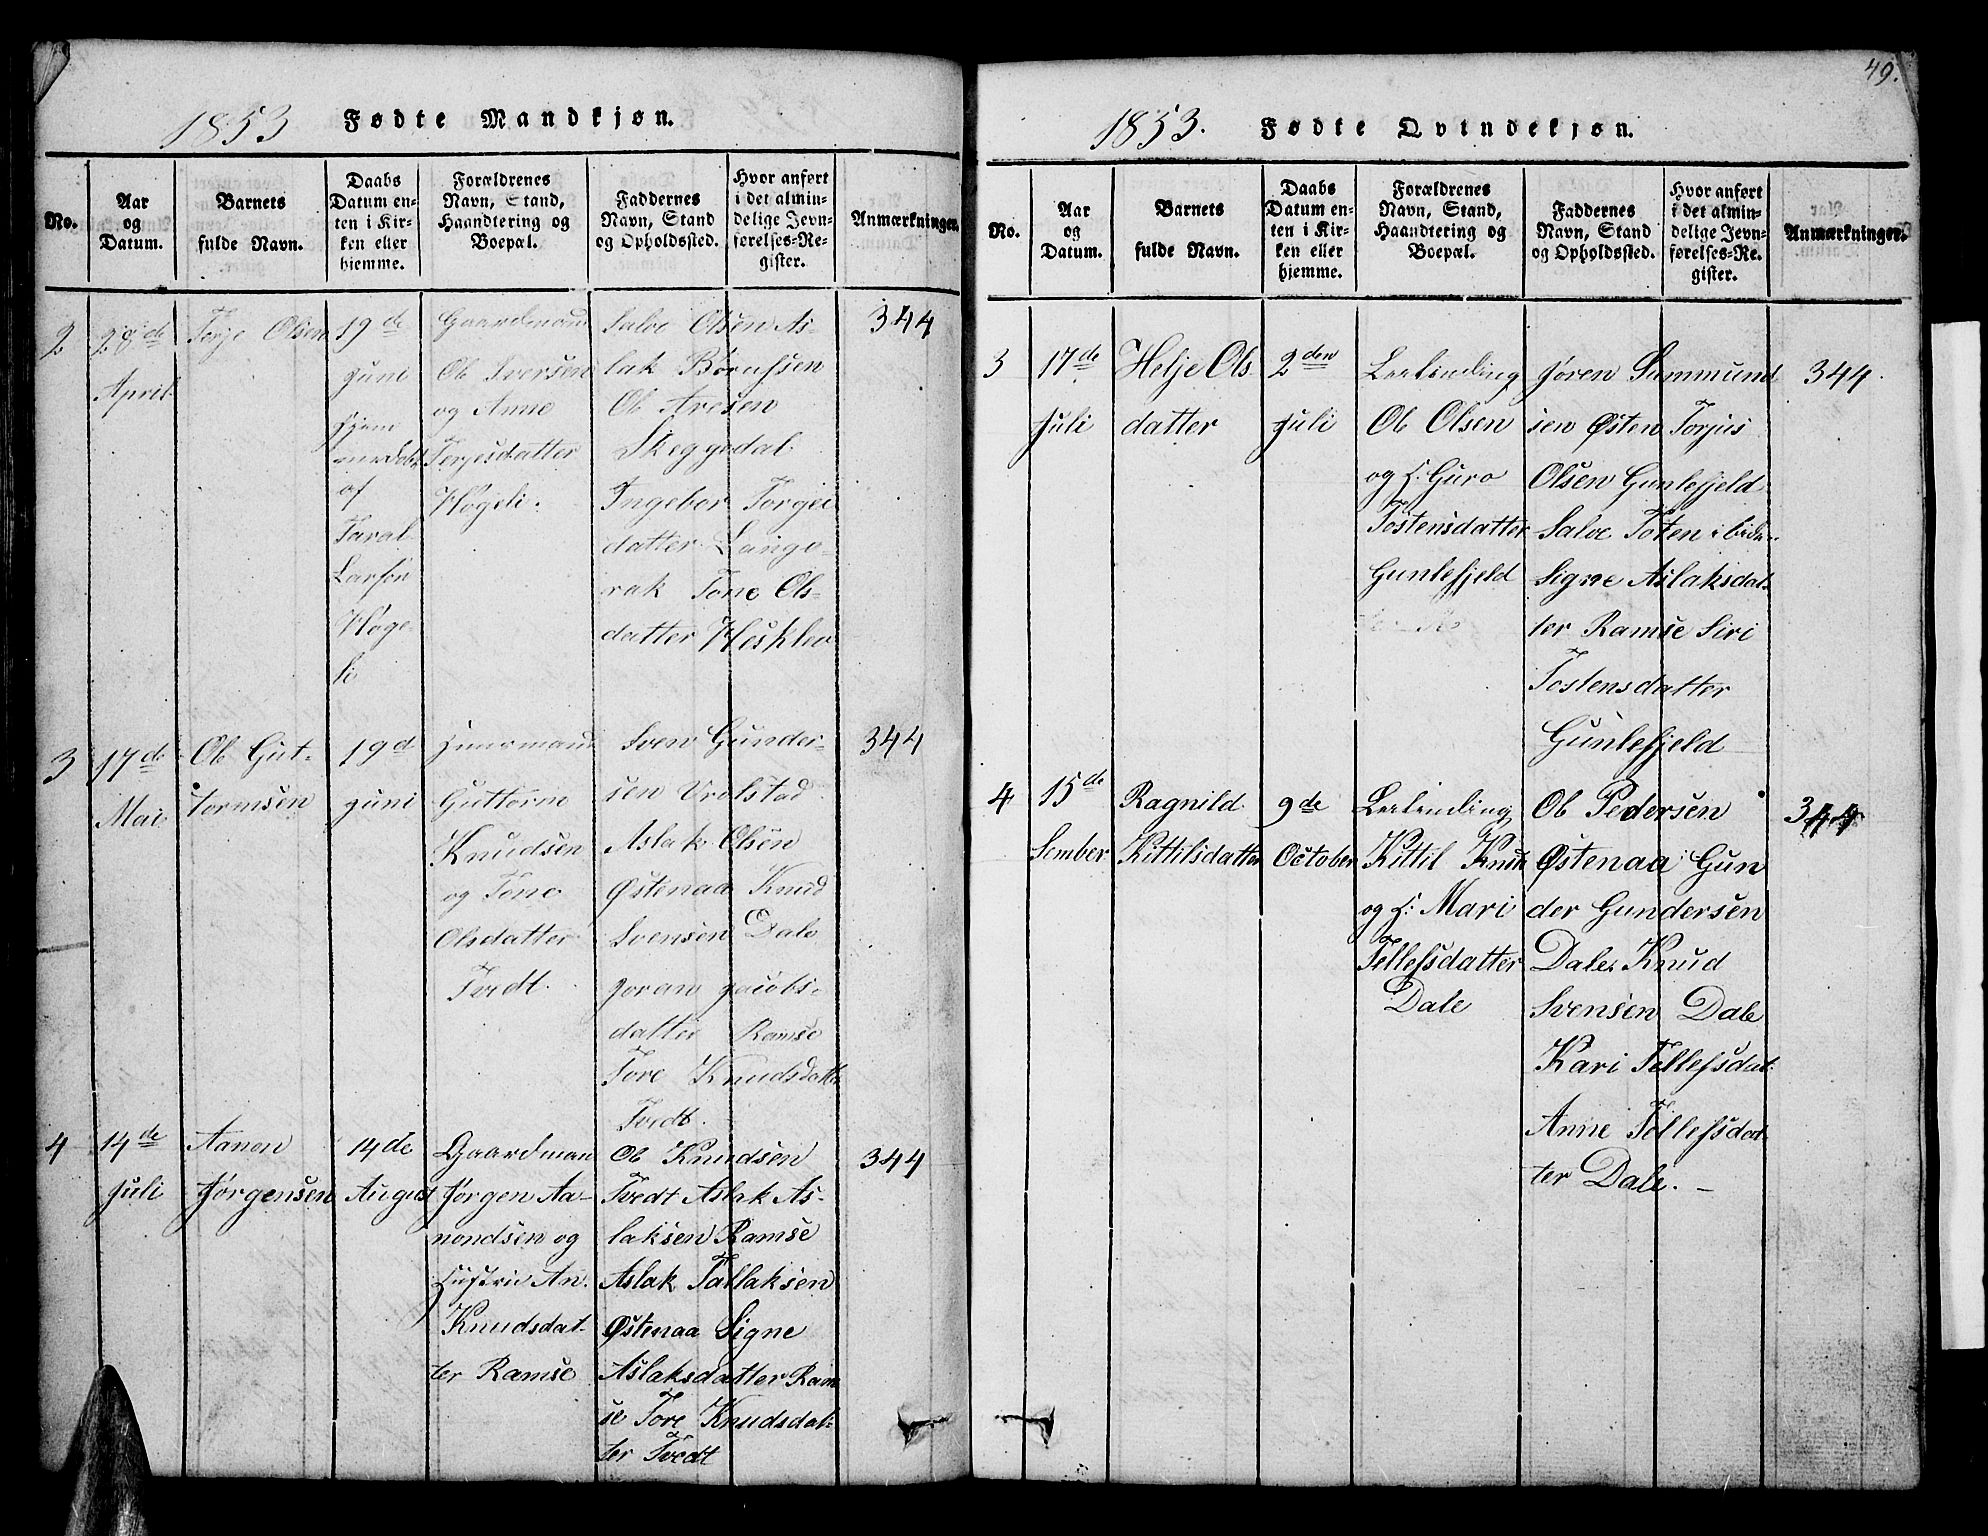 1853 Fødte Mandkjøn.
No.
Aar
og
Datum.
Barnets
fulde Navn.
Daabs
Datum en-
ten i Kir-
ken eller
hjemme.
Forældrenes
Navn, Stand,
Haandtering og
Boepæl.
Faddernes
Navn, Stand
og Opholdssted.
Hvor anført
i det almin-
delige Jevn-
førelses-Re-
gister.
Anmærkninger.
2
28de
April
Terje Olsen
19de
Juni
hjem
af
Taral
Larsen
Høge-
li
Gaardmand
Ole Iversen
og Anne
Terjesdatter
Høgeli.
Salve Olsen As-
lak Børufsen
Ole Aresen
Skeggedal
Ingebor Torgei
datter Lango-
rak Tone Ols-
datter Hesklev
344
3
17de
Mai
Ole Gut-
tormsen
19d
Juni
Huusmand
Guttorm
Knudsen
og Tone
Olsdatter
Tvedt.
Sven Gunder-
sen Vrolstad
Aslak Olsen
Østenaa Knud
Svensen Dale
Joran Jacobs-
datter Ramse
Tore Knudsdatte
Tvedt.
344
4
14de
Juli
Aanon
Jørgensen
14de
August
Gaardman
Jørgen Aa-
nondsen og
Hustrue An.
Knudsdat-
ter Ramse
Ole Knudsen
Tvedt Aslak As-
laksen Ramse
Aslak Tallaksen
Østenaa Signe
Aslaksdatter Ram
se Tore Knudsdat-
ter Tvedt
344
49.
1853. Fødte Qvindekjøn.
No.
Aar
og
Datum.
Barnets
fulde Navn.
Daabs
Datum en-
ten i Kir-
ken eller
hjemme.
Forældrenes
Navn, Stand,
Haandtering og
Boepæl.
Faddernes
Navn, Stand
og Opholdssted.
Hvor anført
i det almin-
delige Jevn-
førelses-Re-
gister.
Anmærkninger.
3
17de
Juli
Helje Ols
datter
2den
Juli
Leilending
Ole Olsen
og H. Guro
Tostensdatter
Gunlefjeld
Jøren Summund
sen Østen Torjus
Olsen Gunlefjeld
Salve Toten
Signe Aslaksdat-
ter Ramse Siri
Tostensdatter
Gunlefjeld
344.
4
15de
Sember
Ragnild
Kittilsdatter
9de
October
Leilending
Kittil Knud
og H: Mari
Tellefsdatter
Dale
Ole Pedersen
Østenaa Gun
der Gundersen
Dale Knud
Svensen Dale
Kari Tellefsdat.
Anne Tellefsdat
ter Dale. -
344